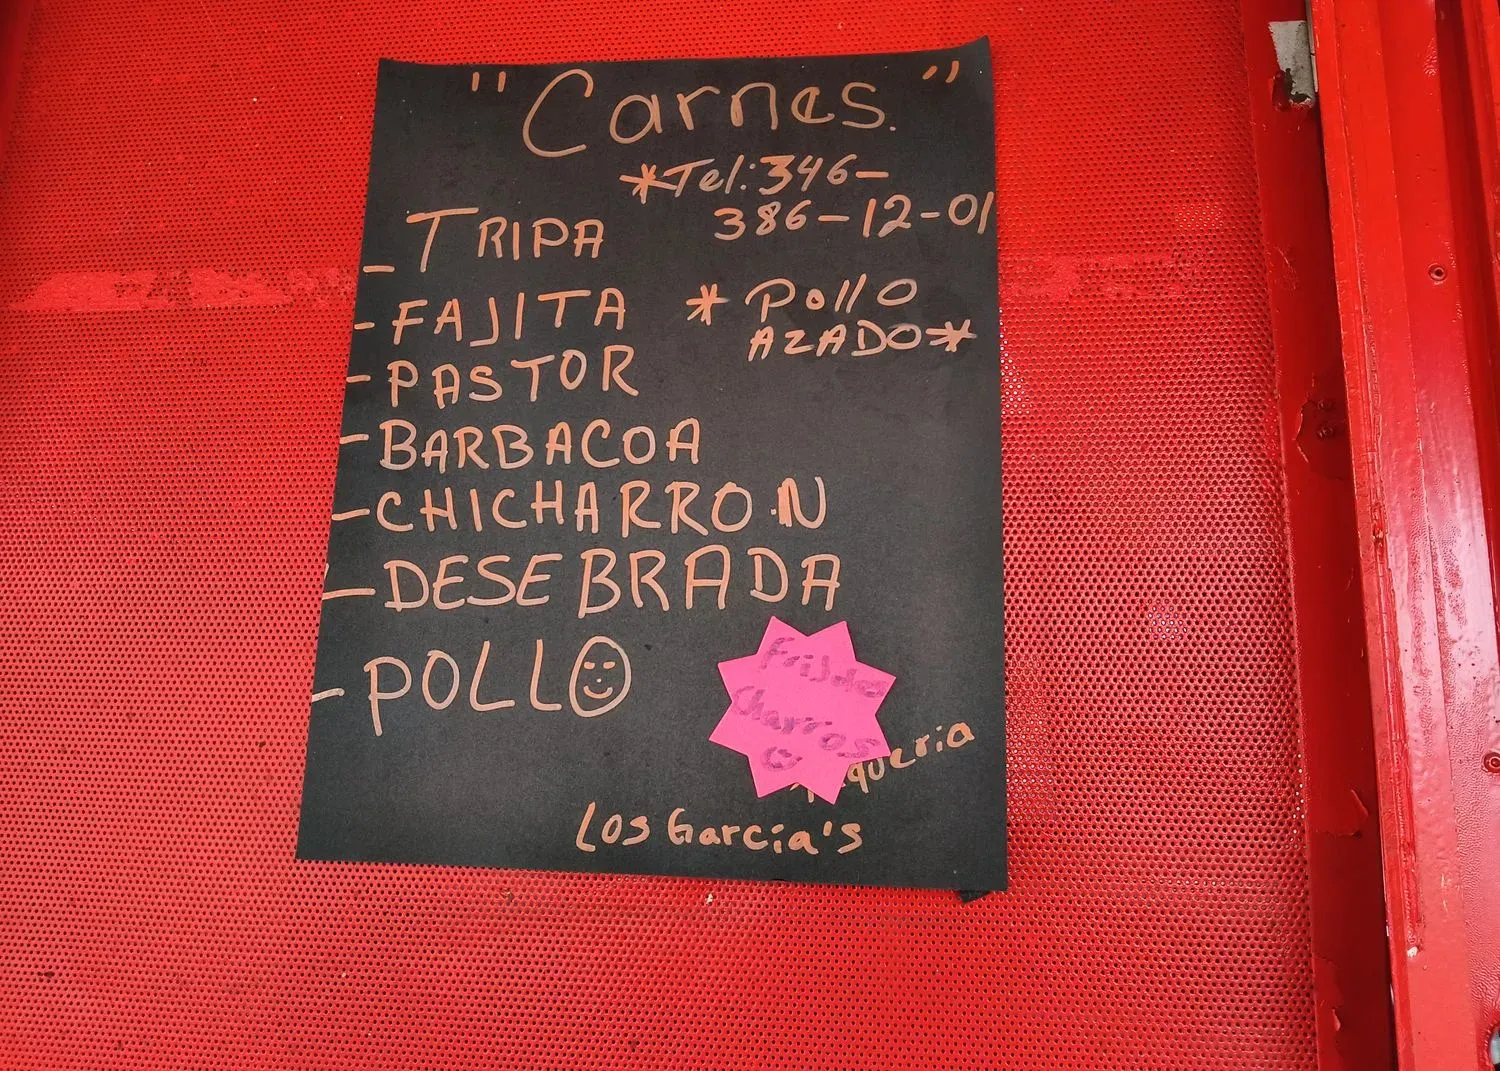 "Carnes."
*Tel: 346-
386-12-01
- TRIPA
- FAJITA
* Pollo
AZADO *
- PASTOR
- BARBACOA
- CHICHARRON
- DESEBRADA
- POLLO
Frijoles
Charros
queria
Los Garcia's